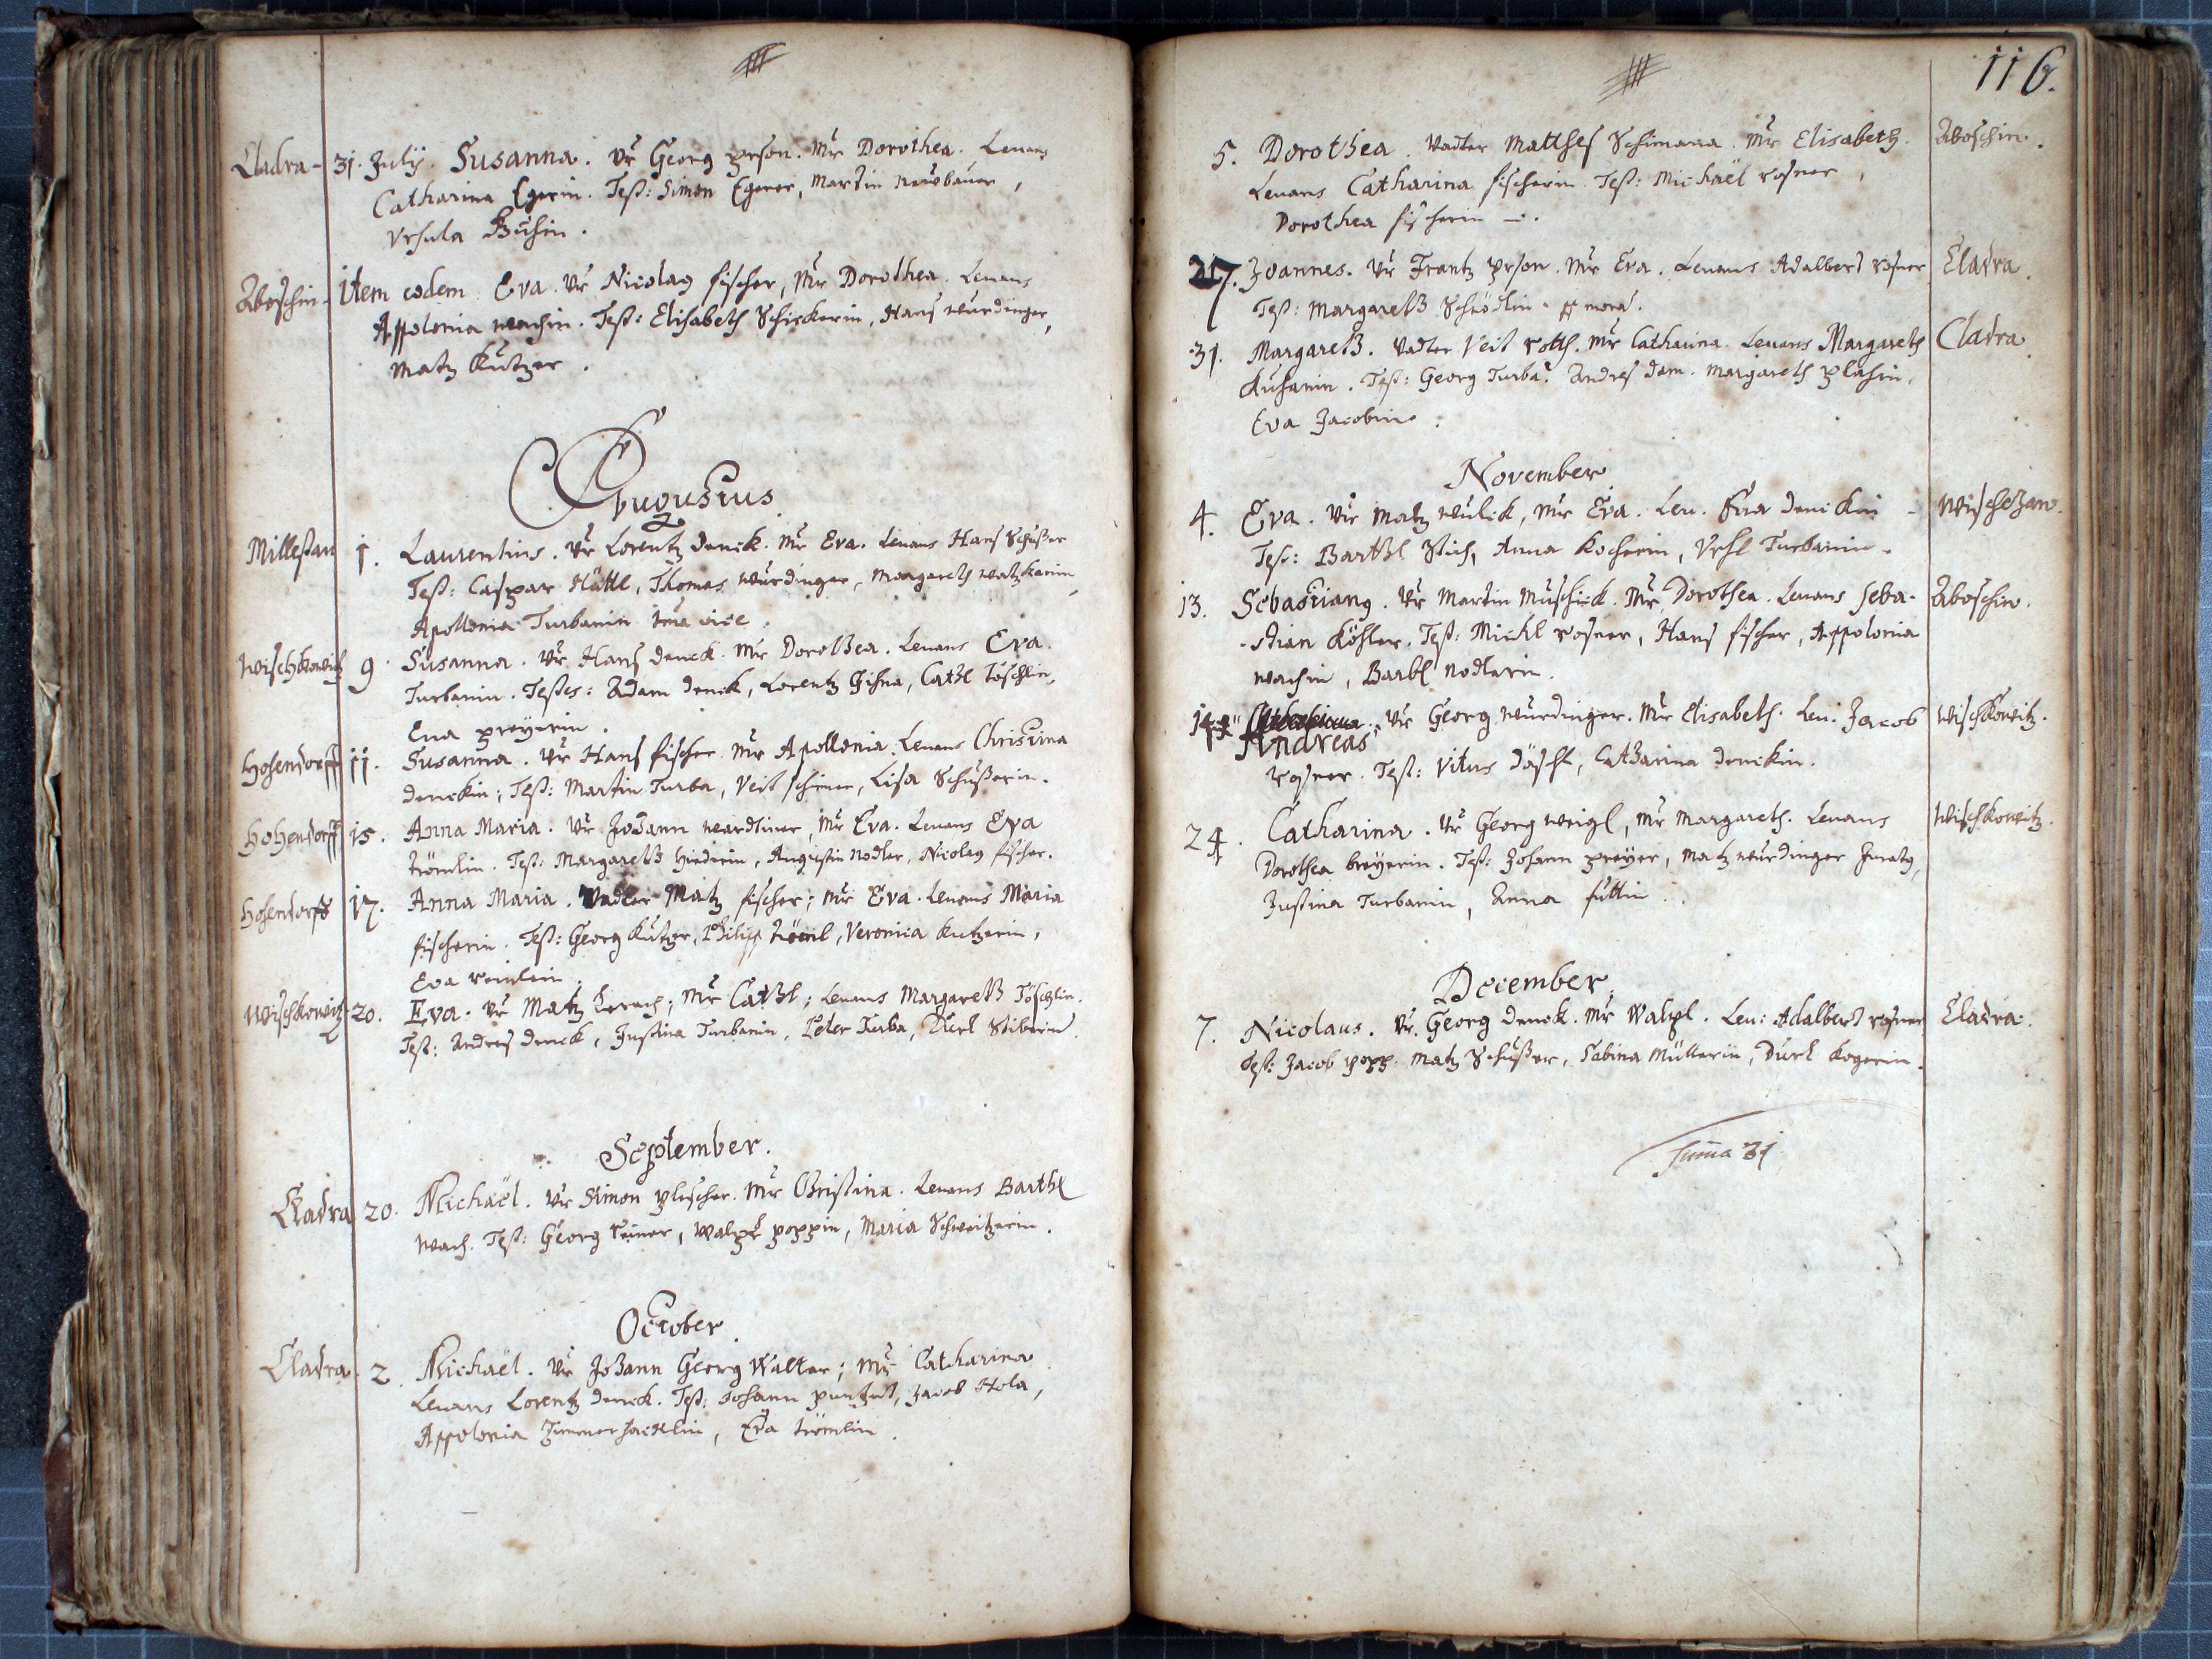 Cladra - 31. July. Susanna. Vr Georg person. Mr Dorothea. Levans
Catharina Egerin. Test: Simon Egerer, Martin Neubauer,
Vrsula
Zboschin - Item eodem. Eva. Vr Nicolaus fischer, Mr Dorothea. Levans
Appolonia wachin. Test: Elisabeth Schickerin, Hans wurdinger,
Matz Kutzer.
Augustus
Millestau 1. Laurentius. Vr Lorentz denck. Mr Eva. Levans Hans Schußer
Test: Caspar Hüttl, Thomas Würdinger, Margareth watzkarin,
Apollonia Turbanin
Wischkowitz 9. Susanna. Vr Hans denck. Mr Dorothea. Levans Eva
Turbanin. Testes: Adam denck, Lorentz, Cathl Töschlin,
Eua preyerin.
Hohendorff 11. Susanna. Vr Hans fischer. Mr Apollonia. Levans Christina
denckin; Test: Martin Turba, Veit, Lisa Schusterin.
Hohendorff 15. Anna Maria. Vr Johann wardtiner, Mr Eva. Levans Eva
trömlin. Test: Margareth, Augustin Nodler, Nicolaus fischer.
Hohendorff 17. Anna Maria. Vadter Matz fischer; Mr Eva. Levans Maria
fischerin. Test: Georg Kutzer, Philipp tröml, Veronica Kutzerin,
Eva
Wischkowitz 20. Eva. Vr Matz; Mr Cathl; Levans Margareth Töschlin.
Test: Andres denck, Justina Turbanin, Peter Turba, Durl
September.
Cladra 20. Michaël. Vr Simon plescher. Mr Christina. Levans Barthl
wach. Test: Georg, walpl poppin, Maria Schweitzerin.
October.
Cladra 2. Michaël. Vr Johann Georg Walter; Mr Catharina
Levans Lorentz denck. Test: Johann, Jacob Hola,
Appolonia Zimmerhacklin, Eva trömlin.
116.
5. Dorothea. Vadter Matthes Schimana. Mr Elisabeth. Zboschin.
Levans Catharina fischerin. Test: Michaël rosner,
Dorothea fischerin
27. Joannes. Vr Frantz person. Mr Eva. Levans Adalbert rosner Cladra.
Test: Margareth
31. Margareth. Vadter Veit roth. Mr Catharina. Levans Margareth Cladra
Test: Georg Turba. Andres dam. Margareth
Eva Jacobin.
November.
4. Eva. Vr Matz, Mr Eva. Lev. Eua denckin -
Test: Barthl, Anna Kocherin, Vrsl Turbanin.
13. Sebastianus. Vr Martin Muschick. Mr Dorothea. Levans Seba- Zboschin.
-stian Köhler. Test: Michl rosner, Hans fischer, Appolonia
wachin, Barbl Nodlerin.
Vr Georg wurdinger. Mr Elisabeth. Lev: Jacob Wischkowitz.
Andreas
rosner. Test: Vitus döschl, Catharina denckin.
24. Catharina. Vr Georg weigl, Mr Margareth. Levans Wischkowitz.
Dorothea breyerin. Test: Johann preyer, Matz wurdinger,
Justina Turbanin, Anna
December.
7. Nicolaus. Vr. Georg denck. Mr Walpl. Lev: Adalbert rosner Cladra.
Test: Jacob popp. Matz Schußer, Sabina Müllerin, Durl Kogerin.
Suma 31